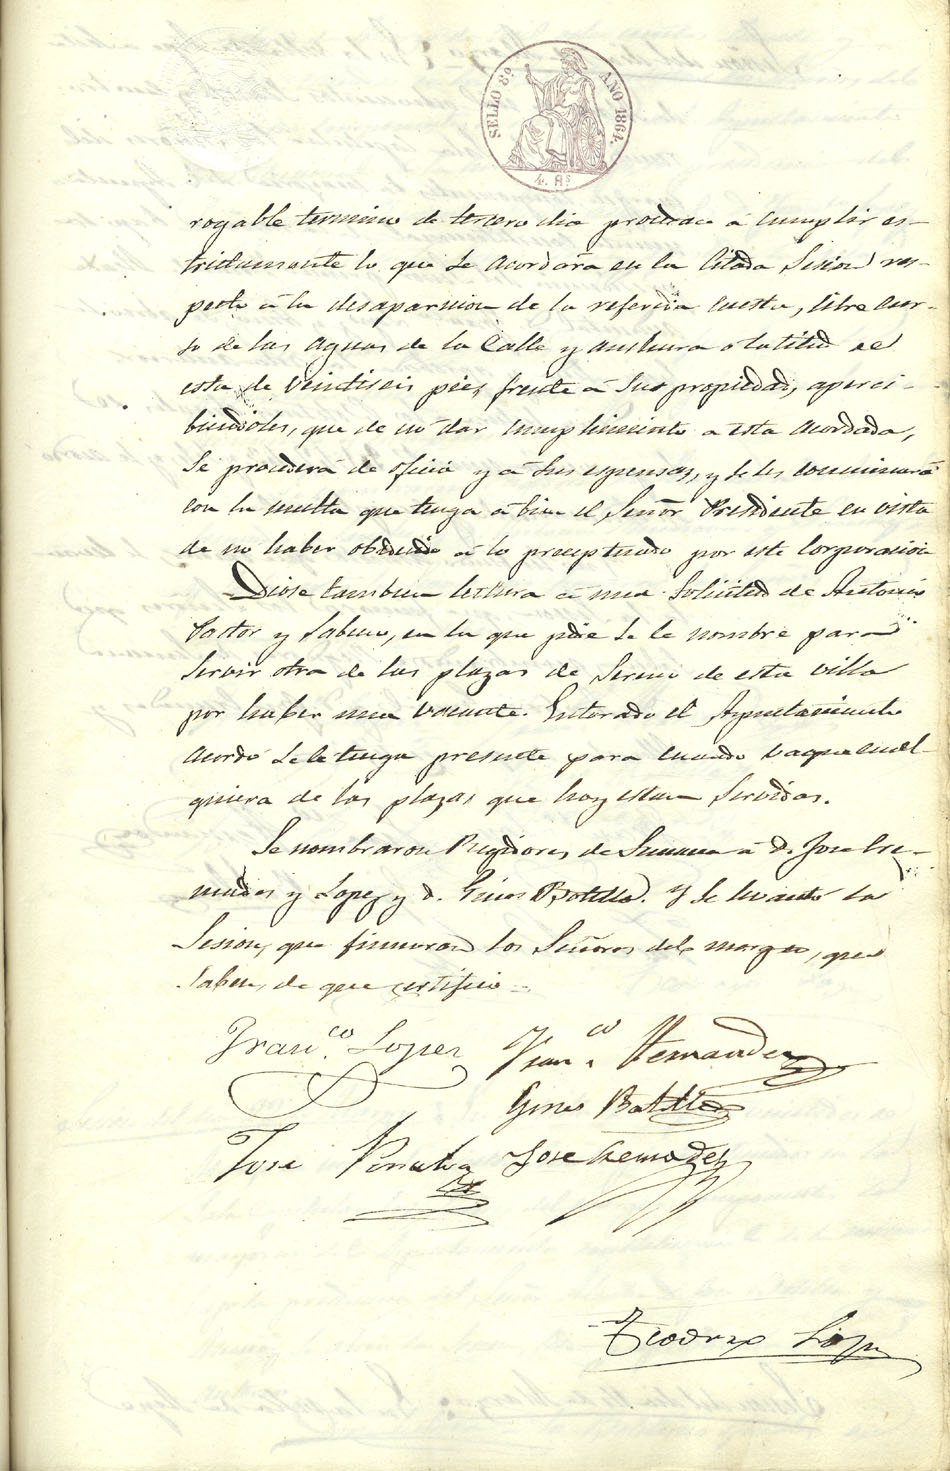 SELLO 8º AÑO 1864.
4. Rs
rogable termino de tercero dia proceda á cumplir es-
trictamente lo que se acordára en la citada Sesion res-
pecto á la desaparicion de la referida cuesta, libre cur-
so de las aguas de la Calle y anchura o latitud de
esta de veintiseis pies frente á su propiedad, aperci-
biendoles, que de no dar cumplimiento a esta acordada,
se procederá de oficio y á sus espensas, y se les conminará
con la multa que tenga á bien el Señor Presidente en vista
de no haber obedecido á lo preceptuado por esta Corporacion
Diose tambien lectura á una Solicitud de Antonio
Pastor y Sabuco, en la que pide se le nombre para
servir otra de las plazas de Sereno de esta villa
por haber una vacante. Enterado el Ayuntamiento
acordó se le tenga presente para cuando vaque cual-
quiera de las plazas que hoy estan servidas.
Se nombraron Regidores de Semana á D. Jose
y Lopez y D. Gines Botella. Y se levantó la
Sesion, que firmaran los Señores del margen, que
saben, de que certifico
Franco. Lopez Franco Hernandez
Gines Botella
Jose Penalva Jose
Lopez